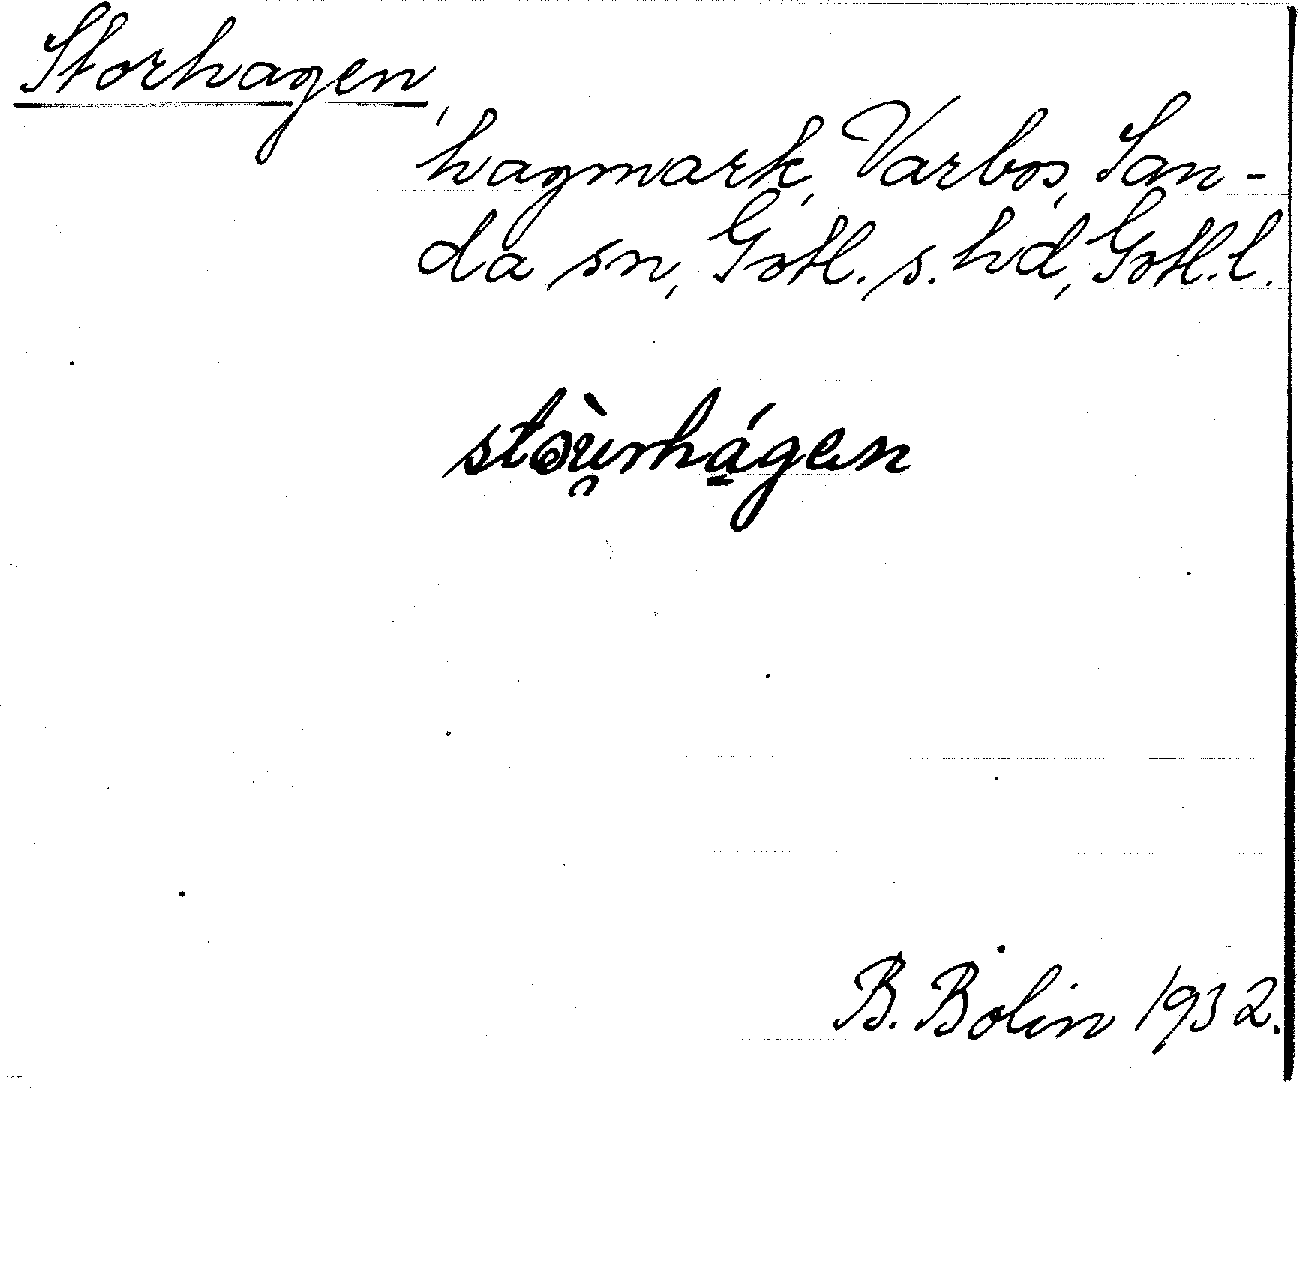 Storhagen,
hagmark, Varbos, San-
da sn, Gotl. s. hd, Gotl. l.
stoù̯rhágen
B. Bolin 1932.